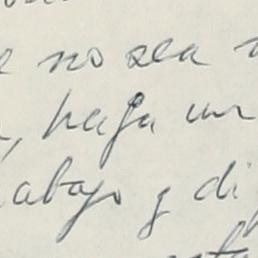 no sea
haga un
abajo y di